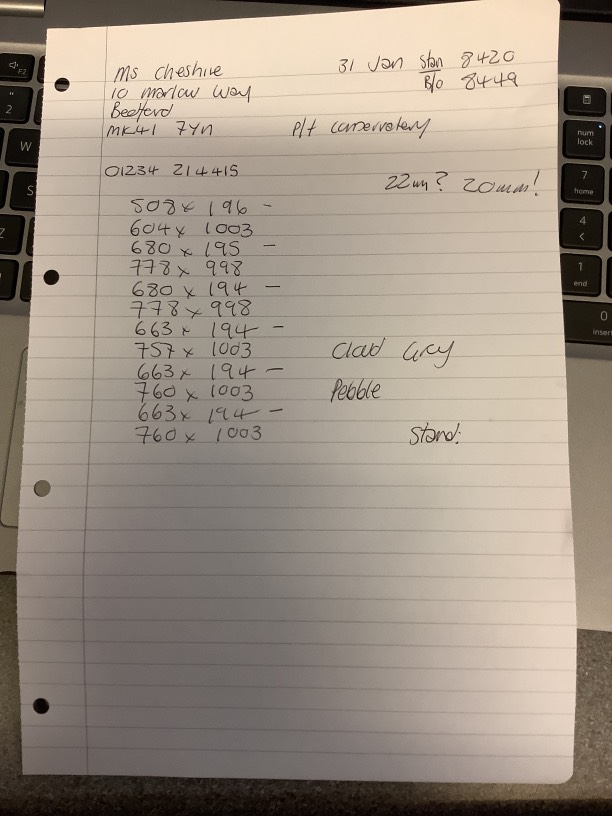 Ms Cheshire 31 Jan Stan 8420
10 Marlow Way B/o 8449
Bedford
MK41 7YN P/t conservatory
01234 214415
22mm? 20mm!
508 x 196 -
604 x 1003
680 x 195 -
778 x 998
680 x 194 -
778 x 998
663 x 194 -
757 x 1003 Clad Grey
663 x 194 -
760 x 1003 Pebble
663 x 194 -
760 x 1003 Stand:
F2
"
2
W
S
Z
num
lock
7
home
4
<
1
end
0
insert